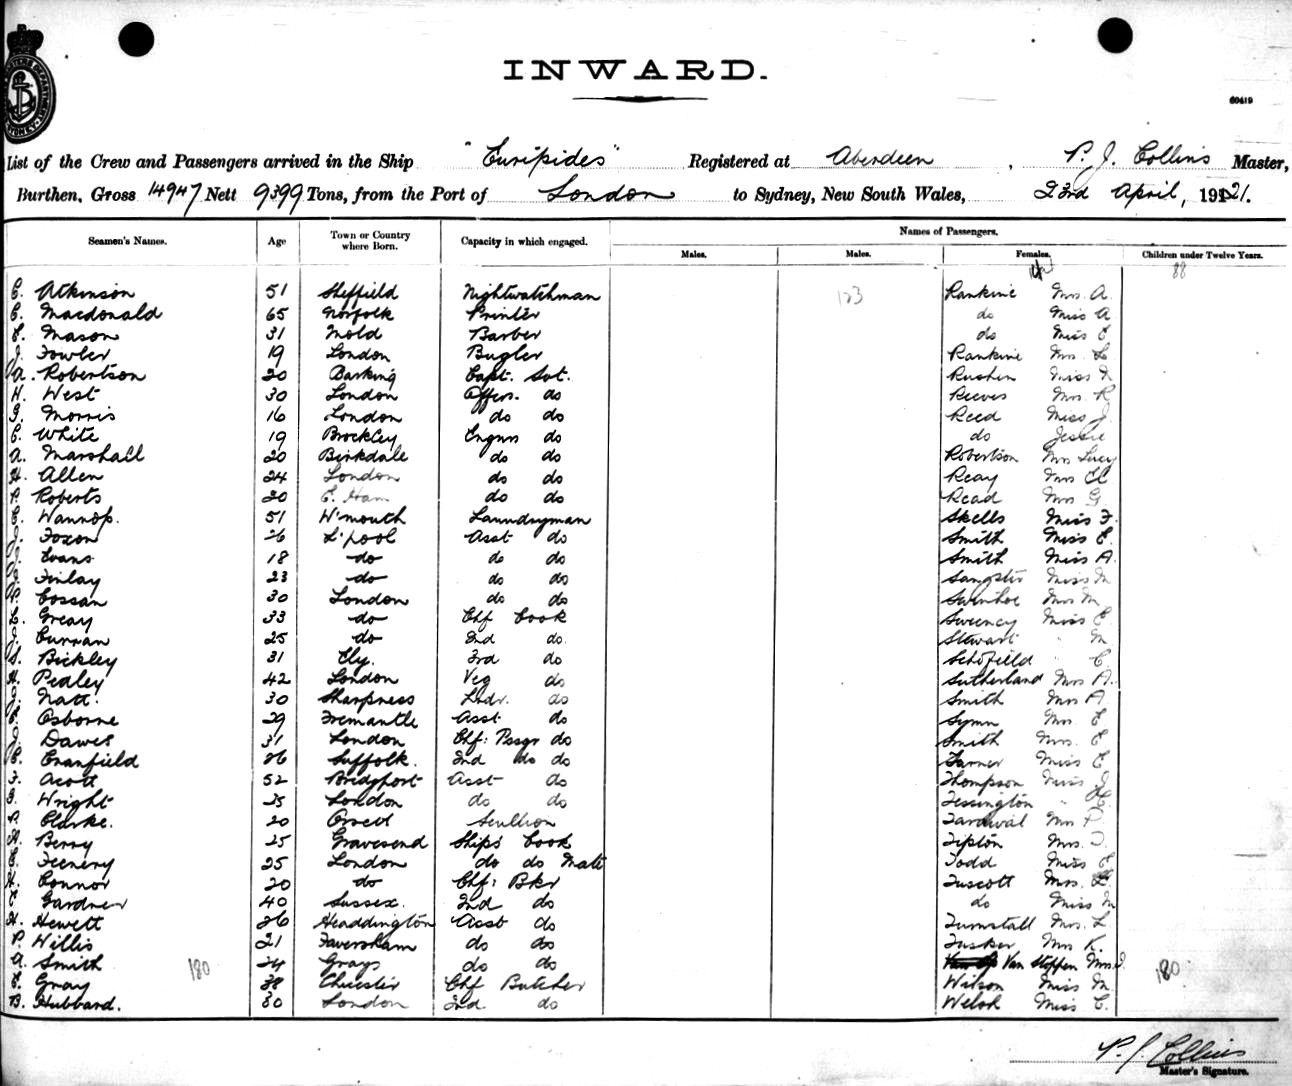 INWARD.
60419
List of the Crew and Passengers arrived in the Ship "Euripides" Registered at Aberdeen, P. J. Collins Master,
Burthen, Gross 14947 Nett 9399 Tons, from the Port of London to Sydney, New South Wales, 23rd April, 1921.
Names of Passengers.
Seamen's Names. Age Town or Country where Born. Capacity in which engaged. Males. Males. Females. Children under Twelve Years.
123 88
C. Atkinson 51 Sheffield Nightwatchman Rankine Mrs. A.
C. Macdonald 65 Norfolk Printer do Miss A
F. Mason 31 Mold Barber do Miss E
J. Fowler 19 London Bugler Rankine Mrs. L
A. Robertson 20 Barking Capt. Svt. Rushen Miss N
H. West 30 London Offrs. do Reeves Mrs. R
G. Morris 16 London do do Reed Miss J.
C. White 19 Brockley Engnrs do do Jessie
A. Marshall 20 Birkdale do do Robertson Mrs Lucy
H. Allen 24 London do do Reay Mrs
P. Roberts 20 E. Ham do do Read Mrs G
C. Wannop. 51 W'mouth Laundryman Skells Miss F.
J. Foxon 26 L'pool Asst do Smith Miss E.
J. Evans 18 do do do Smith Miss A.
J. Finlay 23 do do do Sangster Miss M
P. Cossan 30 London do do Mrs M
C. Greay 33 do Chf Cook Sweeney Miss E.
J. Curran 25 do 2nd do. Stewart " M
S. Bickley 31 Ely. 3rd do Schofield " C.
H. Pedley 42 London Veg do Sutherland Mrs A.
J. Natt. 30 Sharpness Lndr. do Smith Mrs A
F. Osborne 29 Fremantle Asst do Symn Mrs E
J. Dawes 31 London Chf: Pssgr do Smith Mrs. E
C. Cranfield 26 Suffolk. 2nd do do Farner Miss E
F. Acott 52 Bridgport Asst do Thompson Miss J
G. Wright 25 London do do Tessington "
P. Clarke. 20 Orsett Scullion Tardival Mrs P
H. Berry 25 Gravesend Ships Cook Tipton Mrs. T.
C. Feenery 25 London do do Mate Todd Miss E
H. Connor 20 do Chf: Bkr Tuscott Mrs.
F. Gardner 40 Sussex. 2nd do do Miss M
H. Hewett 26 Headdington Asst do Tunstall Mrs. L
P. Willis 21 Faversham do do Tusker Mrs K.
A. Smith 180 24 Grays do do Van Stoppen Mrs. J. 180
F. Gray 38 Chf Butcher Wilson Miss M.
B. Hubbard. 30 London 2nd do Welsh Miss C.
P. J. Collins
Master's Signature.